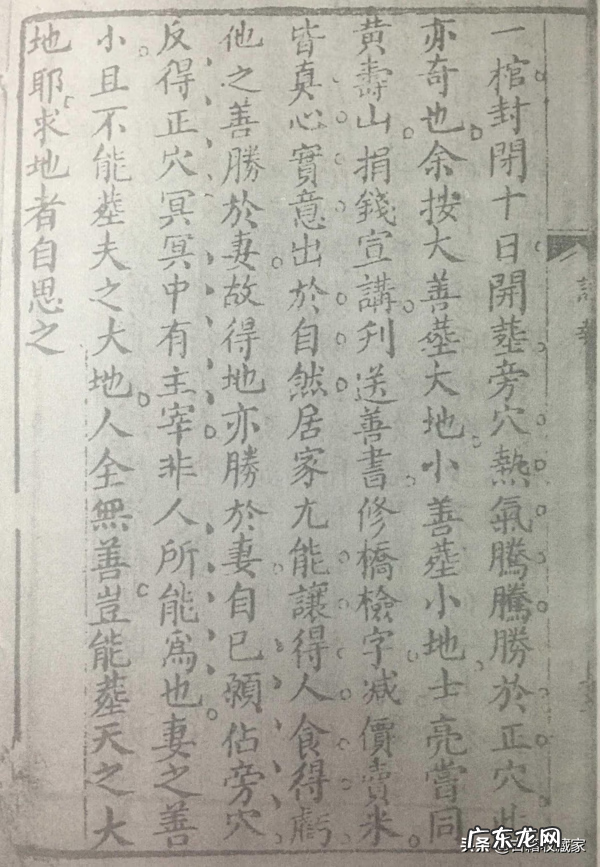 一棺封閉十日開塟旁穴熱氣騰騰勝於正穴此
亦奇也余按大善塟大地小善塟小地士亮嘗同
黃壽山捐錢宣講刋送善書修橋檢字减價賣米
皆真心實意出於自然居家尢能讓得人食得虧
他之善勝於妻故得地亦勝於妻自已願佔旁穴
反得正穴冥冥中有主宰非人所能爲也妻之善
小且不能塟夫之大地人全無善豈能塟天之大
地耶求地者自思之
头条@古籍收藏家
广东龙网